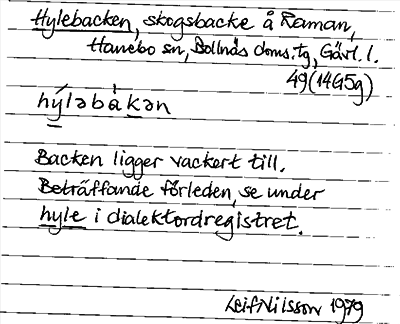 Hylebacken, skogsbacke å Raman,
Hanebo sn, Bollnäs doms. tg, Gävl. l.
49 (14G5g)
hýləbàkən
Backen ligger vackert till.
Beträffande förleden, se under
hyle i dialektordregistret.
Leif Nilsson 1979